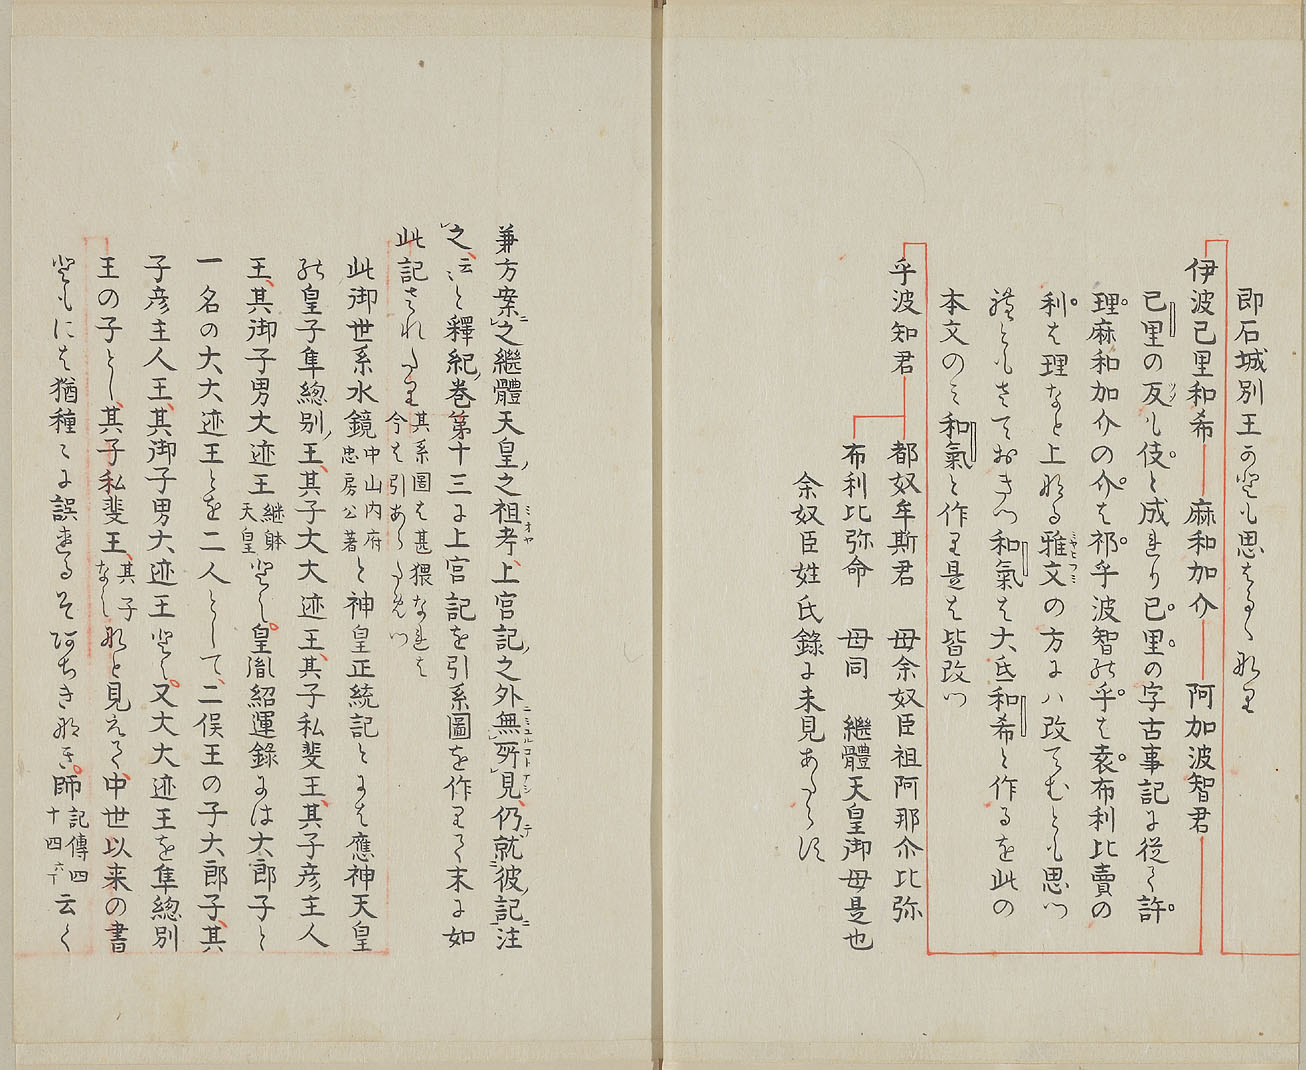 即石城別王かとも思はるゝなり
伊波己里和希 麻和加介 阿加波智君
己里の反も伎と成れり己里の字古事記に従て許
理麻和加介の介は祁乎波智の乎は袁布利比賣の
利は理なと上なる雅文の方にハ改てむとも思へ
ミヤヒフミ
猶ともさておきつ和氣は大氐和希と作るを此の
本文のミ和氣と作り是は皆改つ
乎波知君
都奴牟斯君 母余奴臣祖阿那尒比弥
布利比弥命 母同 繼體天皇御母是也
余奴臣姓氏録に未見あたらす
兼方案之繼體天皇之祖考上官記之外無所見仍就彼記注
ミオヤ
之云々と釋紀巻第十三に上宮記を引系圖を作りて末に如
此記されたり其系圖は甚猥なれは
今は引あらためつ
此御世系水鏡中山内府
忠房公著と神皇正統記とには應神天皇
の皇子隼總別王其子大大迹王其子私斐王其子彦主人
王其御子男大迹王継躰
天皇とし皇胤紹運録には大郎子と
一名の大大迹王とを二人として二俣王の子大郎子其
子彦主人王其御子男大迹王とし又大大迹王を隼總別
王の子とし其子私斐王其子
なしなと見えて中世以来の書
ともには猶種々に誤れるそあちきなき師記傳四
十四六丁云く